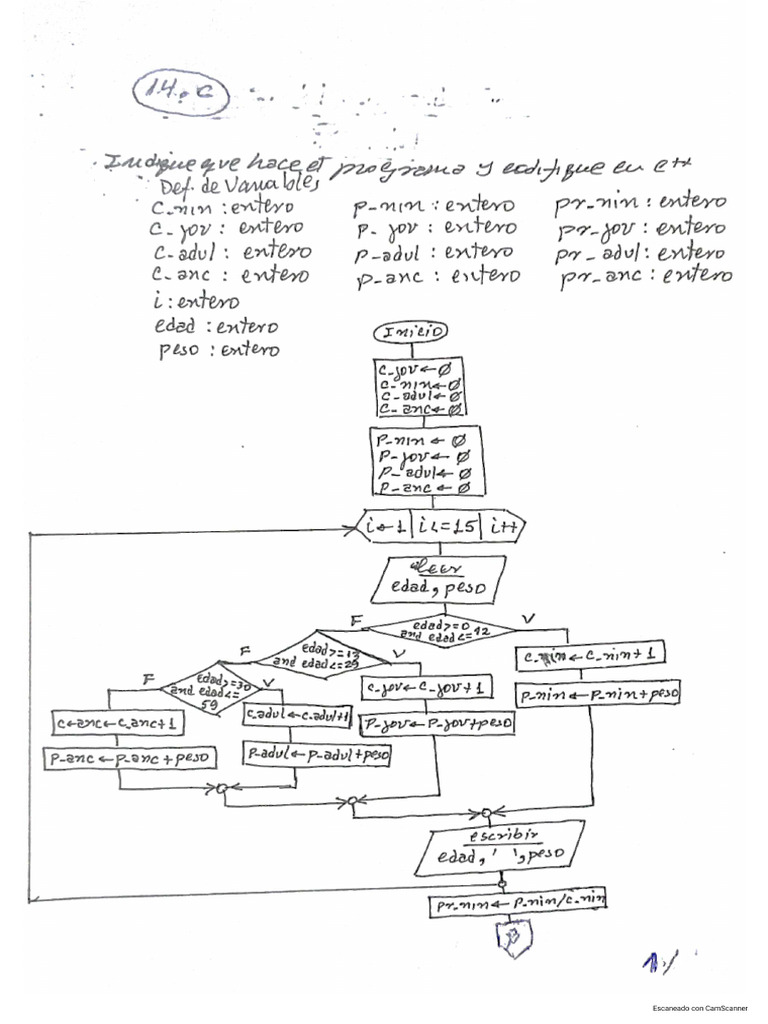 14.c
Indique que hace el programa y codifique en c++
Def. de Variables
c_nin : entero p_nin : entero pr_nin : entero
c_jov : entero p_jov : entero pr_jov : entero
c_adul : entero p_adul : entero pr_adul : entero
c_anc : entero p_anc : entero pr_anc : entero
i : entero
edad : entero
peso : entero
Inicio
c_jov ← Ø
c_nin ← Ø
c_adul ← Ø
c_anc ← Ø
p_nin ← Ø
p_jov ← Ø
p_adul ← Ø
p_anc ← Ø
i ← 1 | i <= 15 | i++
leer
edad, peso
F edad >= 0 V
and edad <= 12
F edad >= 13 V
and edad <= 29
c_nin ← c_nin + 1
F edad >= 30 V
and edad <=
59
c_jov ← c_jov + 1
p_nin ← p_nin + peso
c_anc ← c_anc + 1
c_adul ← c_adul + 1
p_jov ← p_jov + peso
p_anc ← p_anc + peso
p_adul ← p_adul + peso
escribir
edad, ' ', peso
pr_nin ← p_nin / c_nin
1./
Escaneado con CamScanner